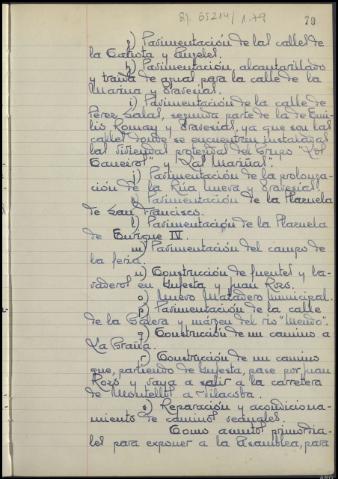 70
g) Pavimentación de las calles de
la Galiota y Angeles.
h) Pavimentación, alcantarillado
y traida de aguas para la calle de la
Marina y travesias.
i) Pavimentación de la calle de
Perez Salas, segunda parte de la de Emi-
lio Romay y travesias, ya que son las
calles donde se encuentran instaladas
las viviendas protegidas del Grupo "Los
Caneiros" y "Las Mariñas".
j) Pavimentación de la prolonga-
ción de la Rúa nueva y travesias
k) Pavimentación de la Plazuela
de San Francisco.
l) Pavimentación de la Plazuela
de Enrique IV.
m) Pavimentación del campo de
la feria.
n) Construcción de fuentes y la-
vaderos en Infesta y Juan Rozo.
o) Nuevo Matadero municipal.
p) Pavimentación de la calle
de la Galera y márgen del rio "Mendo".
q) Construcción de un camino a
La Braña.
r) Construcción de un camino
que, partiendo de Infesta, pase por Juan
Rozo y vaya a salir a la carretera
de Montellos a Vilacoba.
s) Reparación y acondiciona-
miento de caminos vecinales.
Como asuntos primordia-
les para exponer a la Asamblea, para